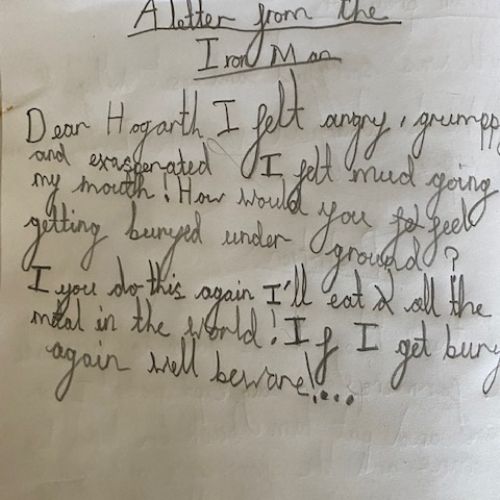 A letter from the
Iron Man
Dear Hogarth I felt angry, grumpy
and exasperated I felt mud going
my mouth! How would you feel
getting buryed under ground?
I you do this again I'll eat all the
metal in the world! If I get bury
again well beware!....